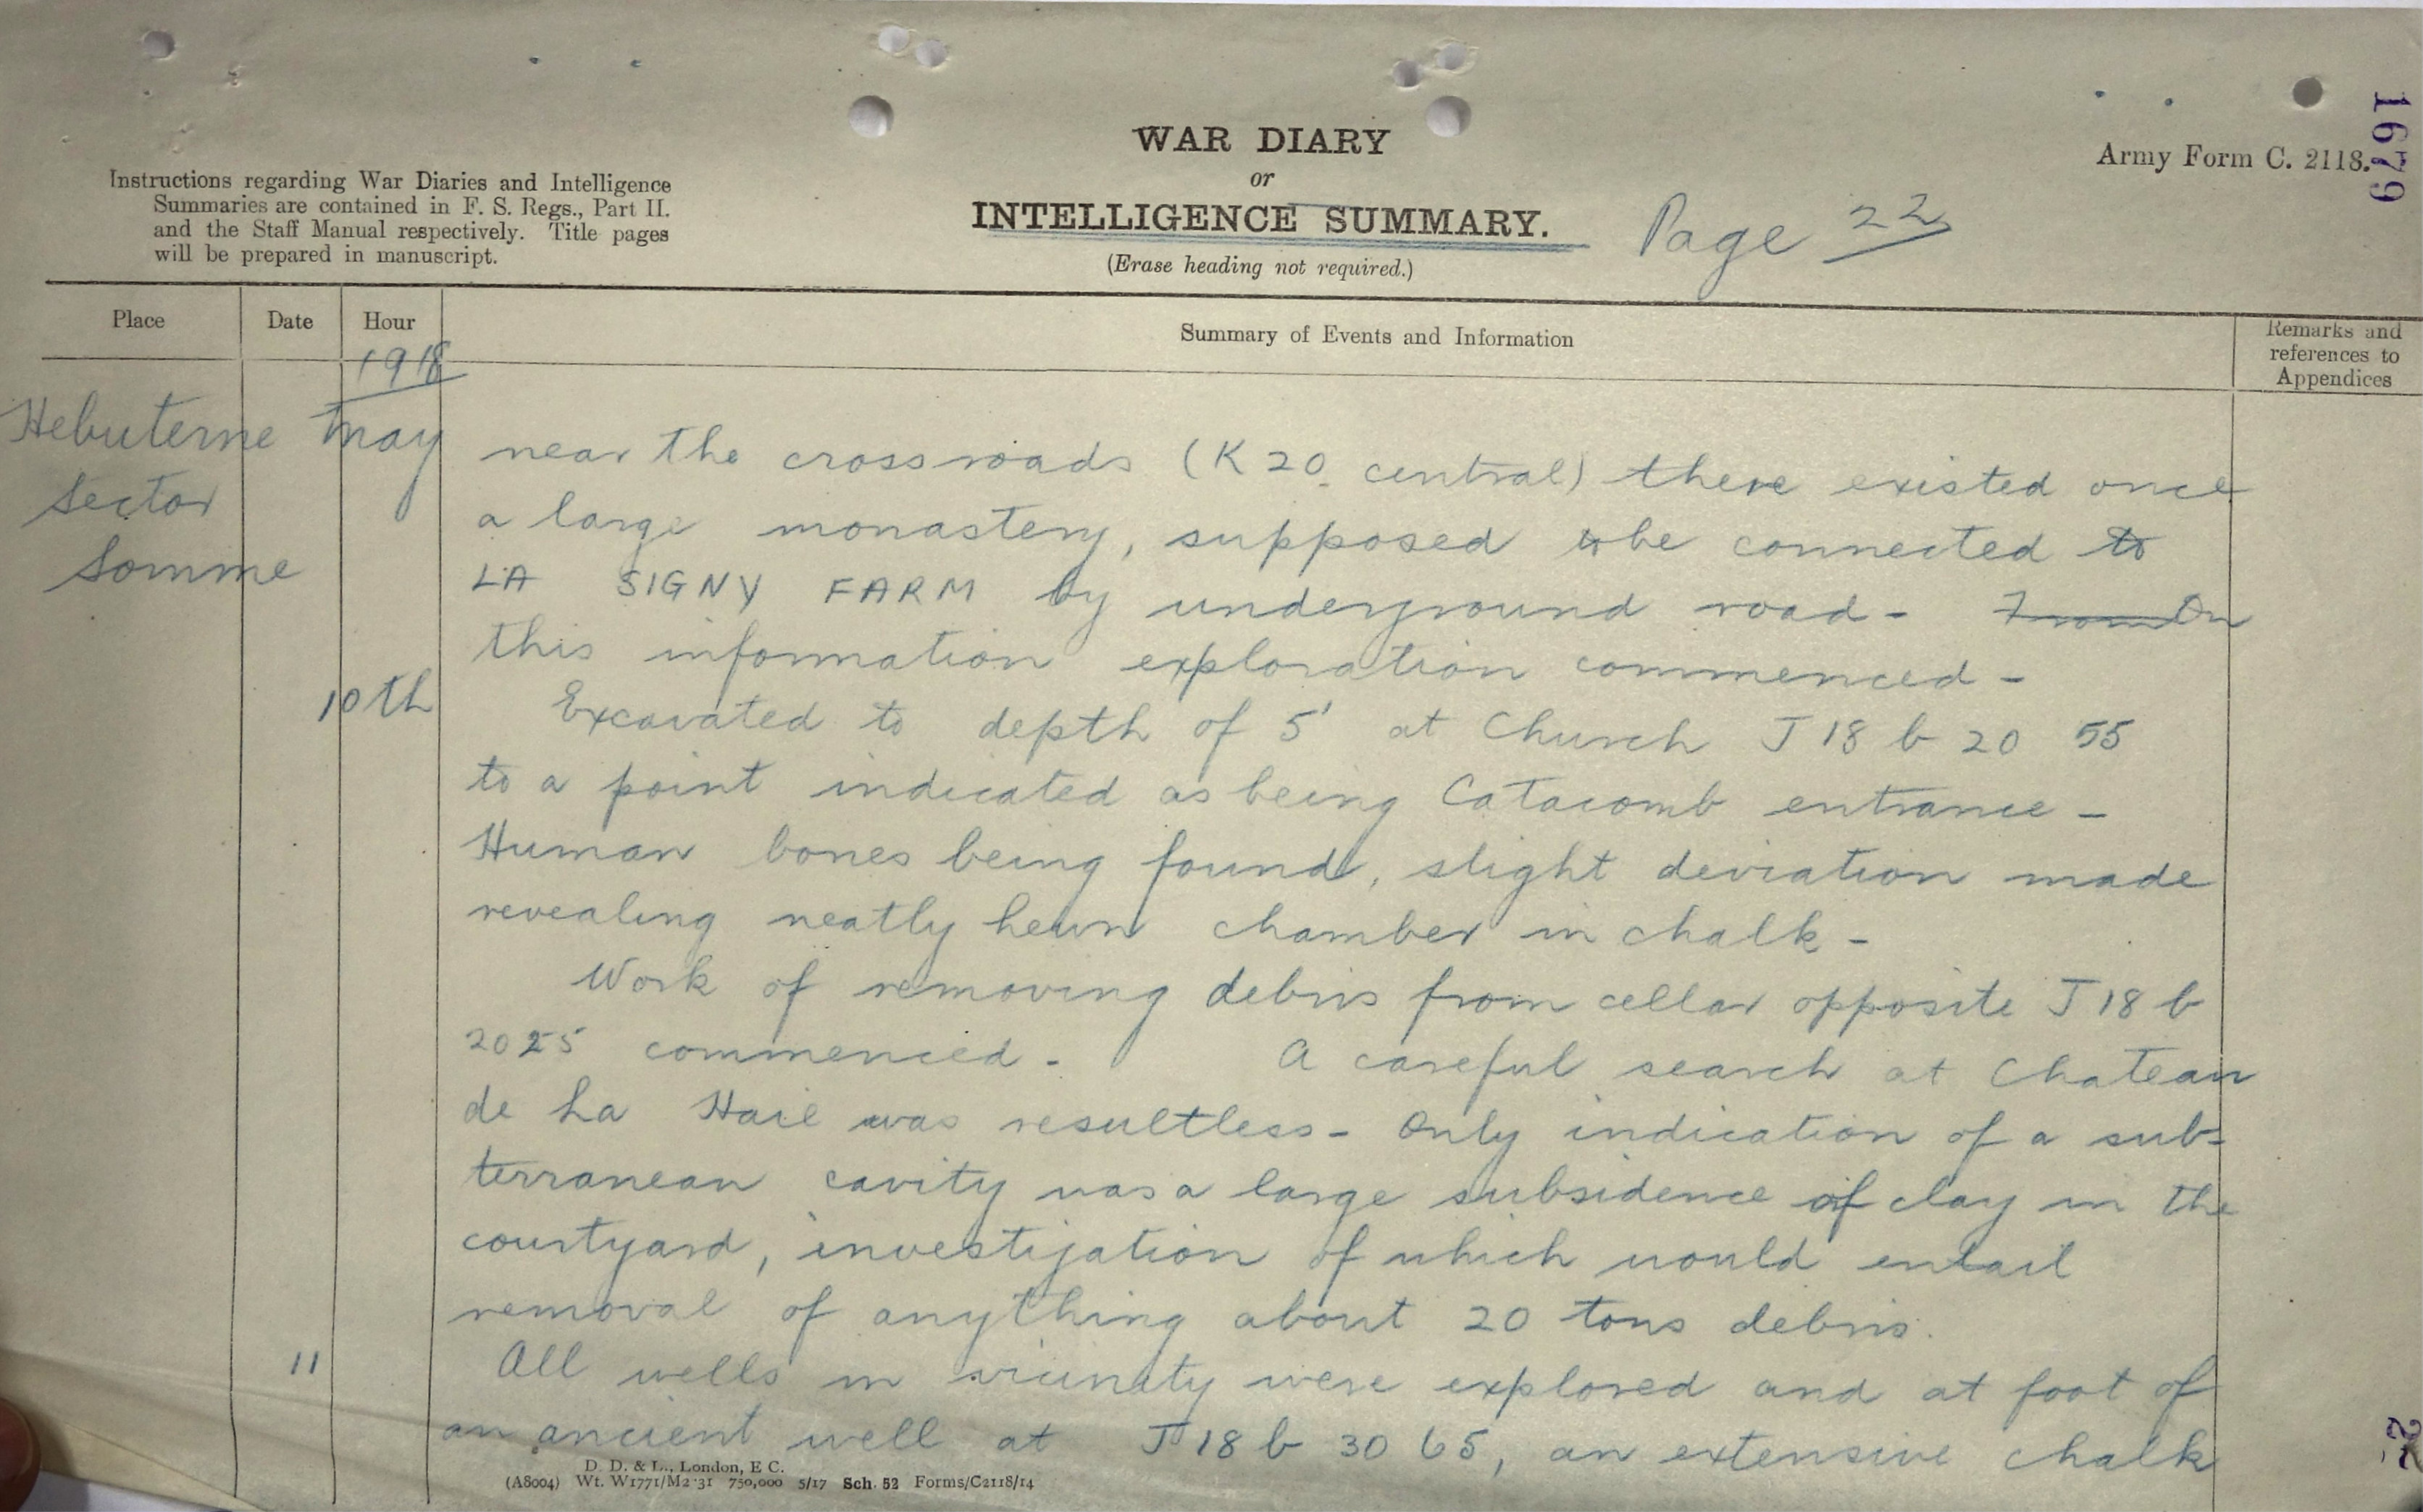 WAR DIARY
or
INTELLIGENCE SUMMARY.
(Erase heading not required.)
Instructions regarding War Diaries and Intelligence
Summaries are contained in F. S. Regs., Part II.
and the Staff Manual respectively. Title pages
will be prepared in manuscript.
Page 22
Army Form C. 2118.
1679
Place
Date
Hour
Summary of Events and Information
Remarks and
references to
Appendices
1918
Hebuterne May
Sector
Somme
near the crossroads (K 20 central) there existed once
a large monastery, supposed to be connected to
LA SIGNY FARM by underground road - From On
this information exploration commenced -
10th
Excavated to depth of 5' at Church J 18 b 20 55
to a point indicated as being Catacomb entrance -
Human bones being found, slight deviation made
revealing neatly hewn chamber in chalk -
Work of removing debris from cellar opposite J 18 b
20 25 commenced - A careful search at Chateau
de La Haie was resultless - Only indication of a sub-
terranean cavity was a large subsidence of clay in the
courtyard, investigation of which would entail
removal of anything about 20 tons debris.
11
All wells in vicinity were explored and at foot of
an ancient well at J 18 b 30 65, an extensive chalk
D. D. & L., London, E C.
(A8004) Wt. W1771/M2 31 750,000 5/17 Sch. 52 Forms/C2118/14